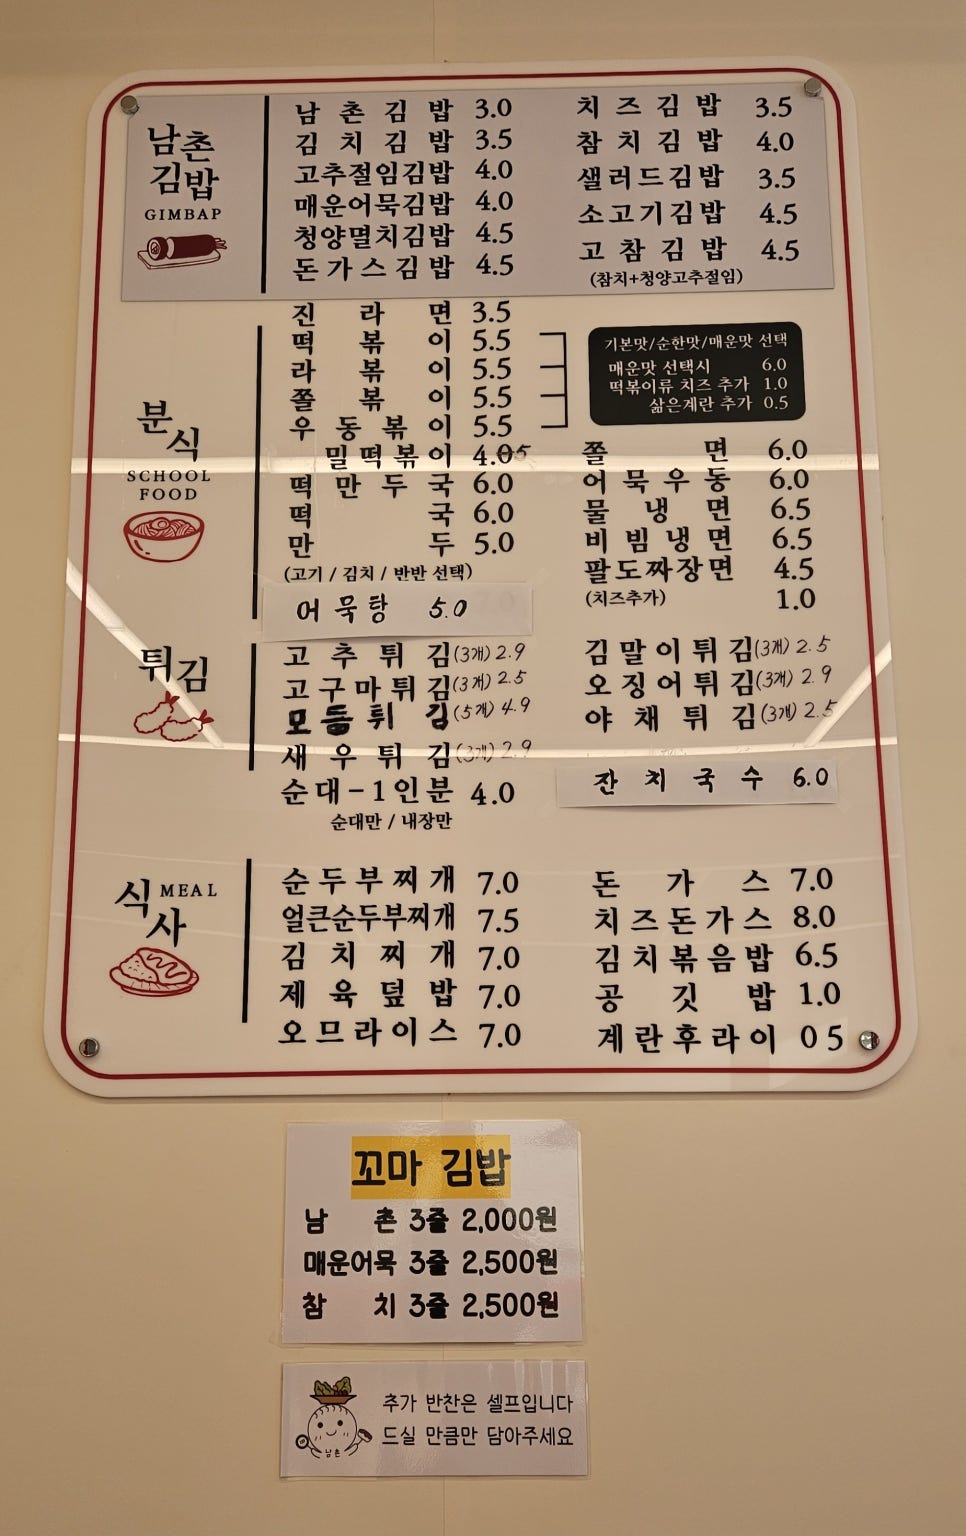 남촌
김밥
GIMBAP
남촌김밥 3.0
김치김밥 3.5
고추절임김밥 4.0
매운어묵김밥 4.0
청양멸치김밥 4.5
돈가스김밥 4.5
치즈김밥 3.5
참치김밥 4.0
샐러드김밥 3.5
소고기김밥 4.5
고참김밥 4.5
(참치+청양고추절임)
분식
SCHOOL
FOOD
진라면 3.5
떡볶이 5.5
라볶이 5.5
쫄볶이 5.5
우동볶이 5.5
밀떡볶이 4.5
떡만두국 6.0
떡국 6.0
만두 5.0
(고기 / 김치 / 반반 선택)
어묵탕 5.0
기본맛/순한맛/매운맛 선택
매운맛 선택시 6.0
떡볶이류 치즈 추가 1.0
삶은계란 추가 0.5
쫄면 6.0
어묵우동 6.0
물냉면 6.5
비빔냉면 6.5
팔도짜장면 4.5
(치즈추가) 1.0
튀김
고추튀김(3개) 2.9
고구마튀김(3개) 2.5
모듬튀김(5개) 4.9
새우튀김(3개) 2.9
순대-1인분 4.0
순대만 / 내장만
김말이튀김(3개) 2.5
오징어튀김(3개) 2.9
야채튀김(3개) 2.5
잔치국수 6.0
식사
MEAL
순두부찌개 7.0
얼큰순두부찌개 7.5
김치찌개 7.0
제육덮밥 7.0
오므라이스 7.0
돈가스 7.0
치즈돈가스 8.0
김치볶음밥 6.5
공깃밥 1.0
계란후라이 0 5
꼬마 김밥
남촌 3줄 2,000원
매운어묵 3줄 2,500원
참치 3줄 2,500원
추가 반찬은 셀프입니다
드실 만큼만 담아주세요
남촌